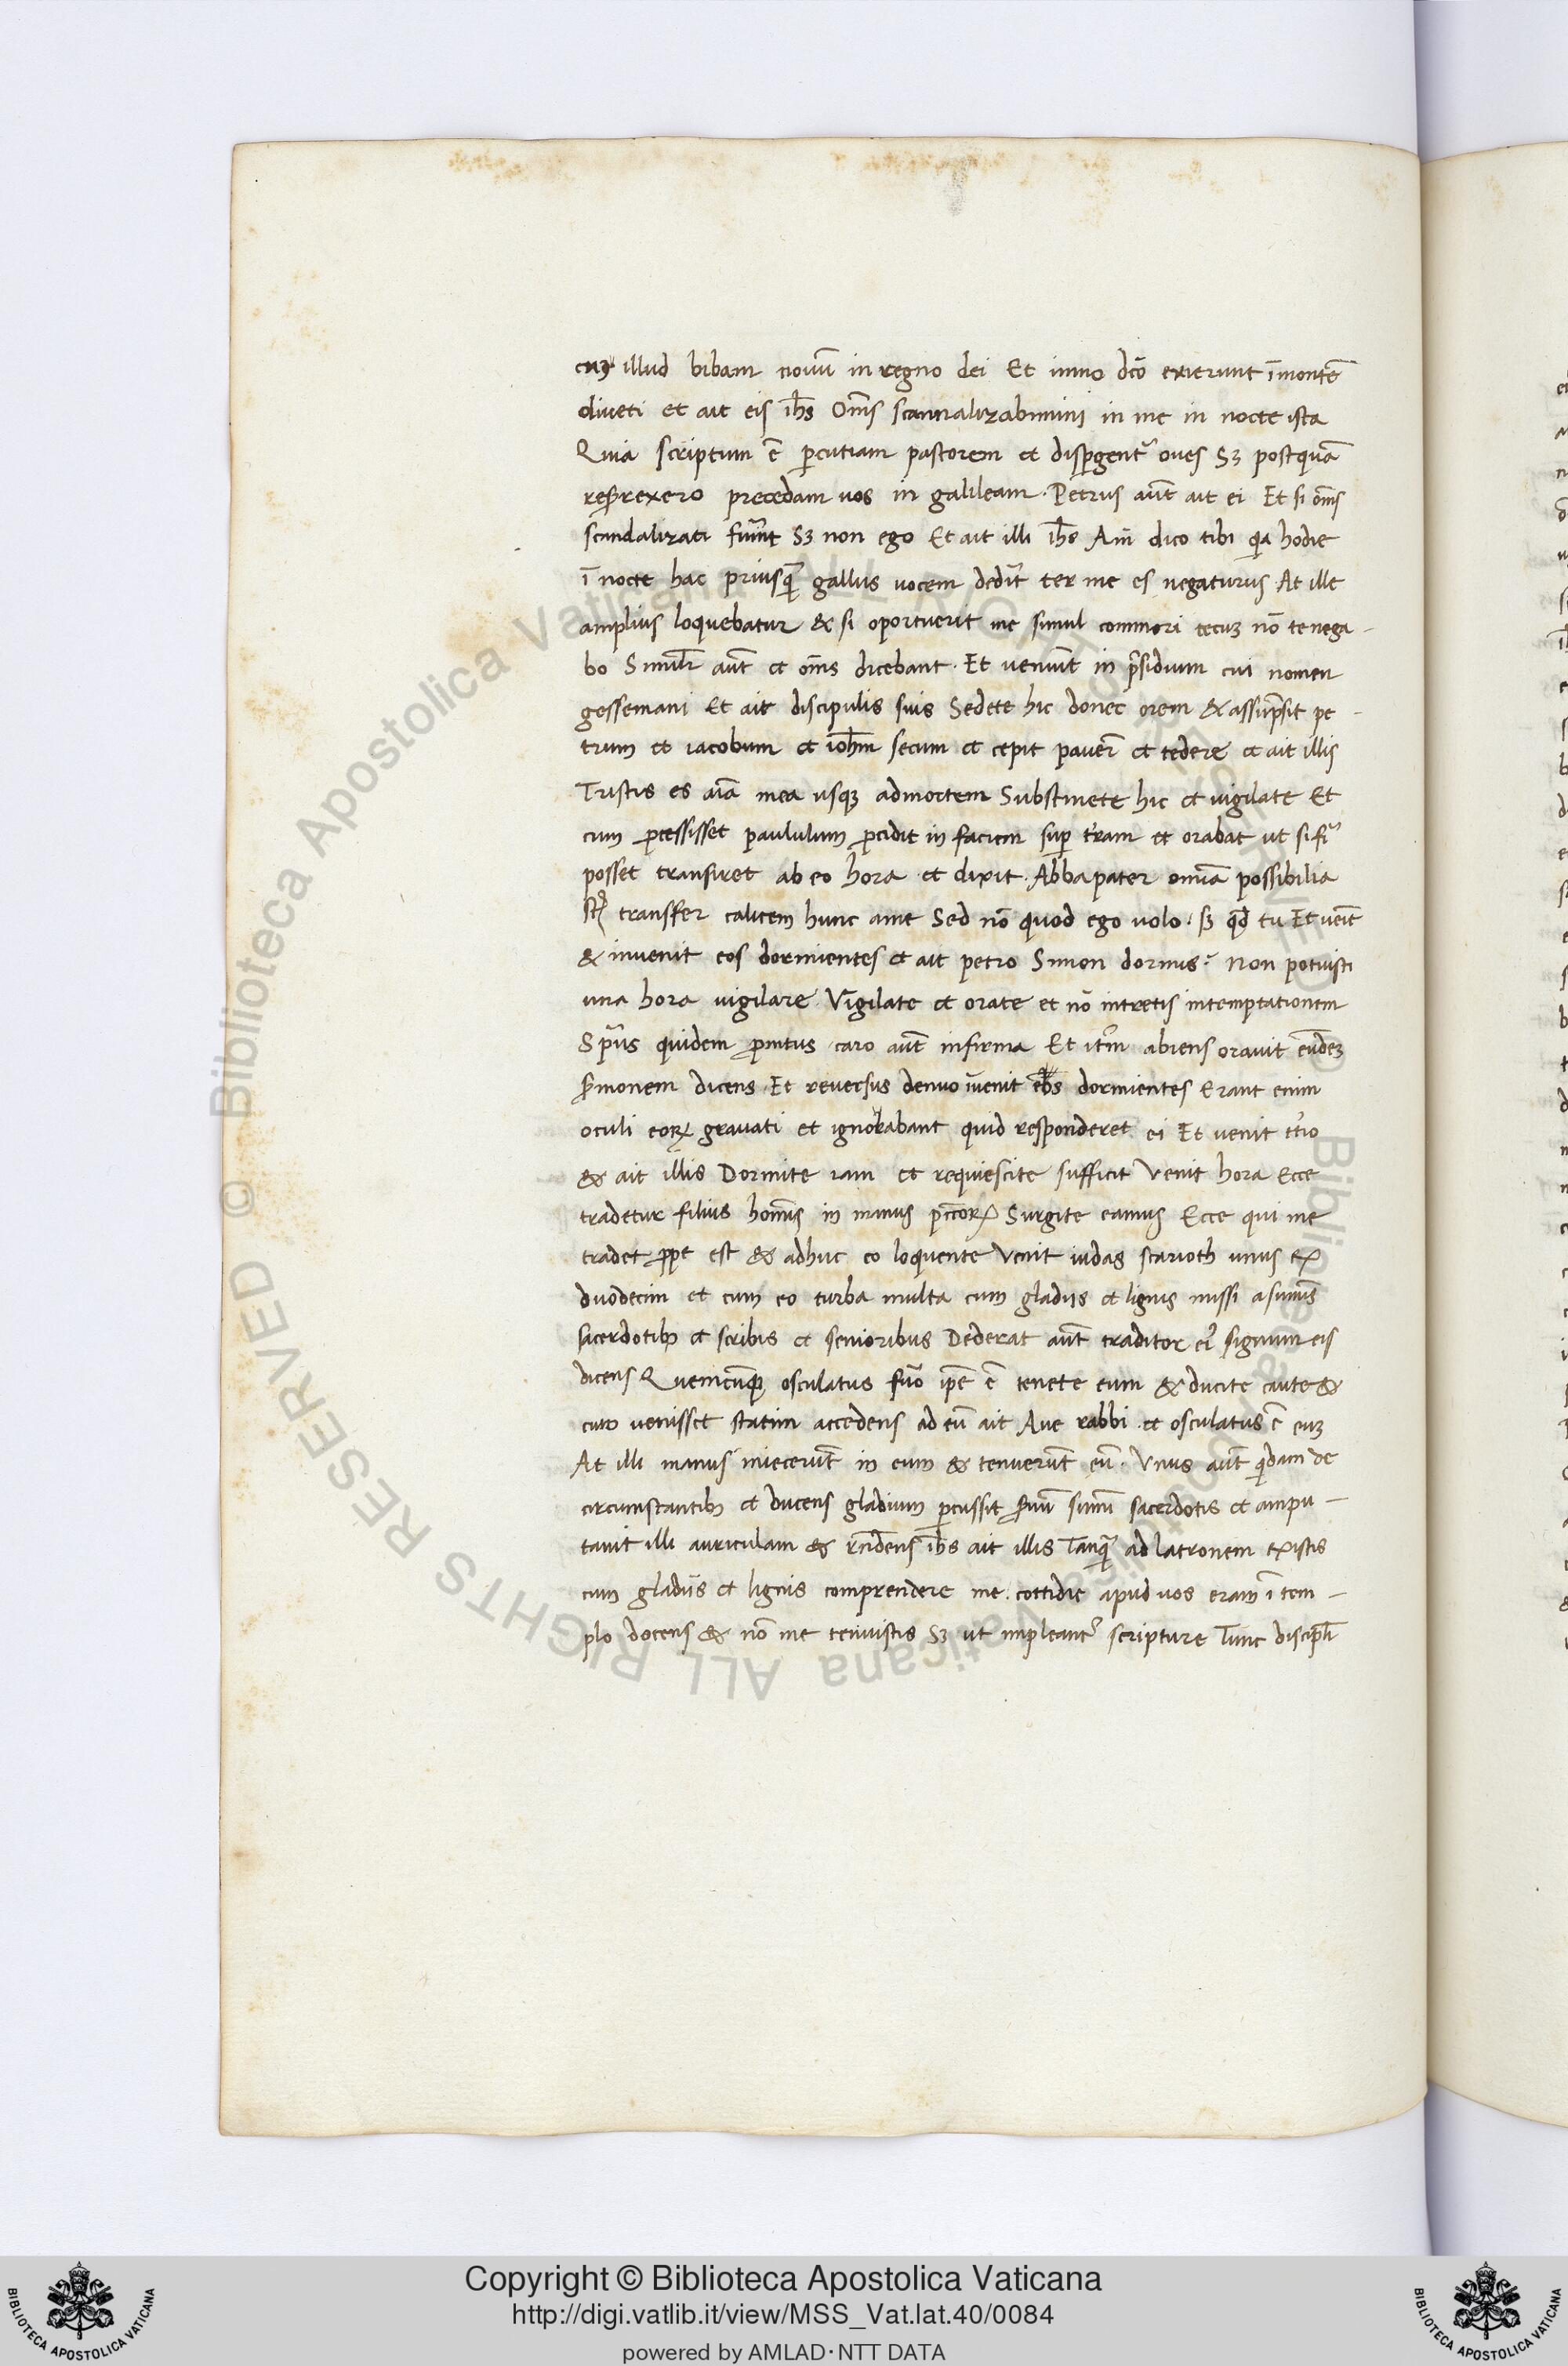 cuȝ illud bibam nouū in regno dei Et imno dc̄o exierunt ī montē
oliueti et ait eis ih̄s Om̄s scannalizabimini in me in nocte ista
Quia scriptum ē ꝑcutiam pastorem et disꝑgent᷑ oues Sȝ postquā
resurrexero precedam uos in galileam. Petrus aūt ait ei Et si om̄s
scandalizati fuīnt Sȝ non ego Et ait illi ih̄s Am̄ dico tibi qa hodie
ī nocte hac priusqꝫ gallus uocem dedīt ter me es negaturus At ille
amplius loquebatur & si oportuerit me simul commori tecuȝ nō te nega-
bo Simil̄r aūt et om̄s dicebant. Et veniūt in p̄sidium cui nomen
gessemani Et ait discipulis suis Sedete hic donec orem & assūpsit pe-
trum et iacobum et ioh̄m secum et cepit pauer̄ et tedere et ait illis
Tristis es aīa mea usqꝫ admortem Substinete hic et uigilate Et
cum ꝓcessisset paululum ꝓcidit in faciem suꝑ t̄ram et orabat ut si fi᷑
posset transiret ab eo hora et dixit. Abba pater omīa possibilia
st᷑ transfer calicem hunc ame Sed nō quod ego uolo. sȝ qd̄ tu Et ueīt
& inuenit eos dormientes et ait petro Simon dormis? Non potuisti
una hora uigilare Vigilate et orate et nō intretis intemptationem
Sp̄us quidem ꝓmtus caro aūt infirma Et it̄m abiens orauit eūdeȝ
s̄monem dicens. Et reuersus denuo īuenit eos dormientes Erant enim
oculi eoꝝ grauati et ignorabant quid responderet ei Et venit t̄rio
& ait illis Dormite iam et requiescite sufficit Venit hora Ecce
tradetur filius homīs in manus pcc̄oꝝ Surgite eamus Ecce qui me
tradet ꝓpe est & adhuc eo loquente Venit iudas scarioth unus ex
duodecim et cum eo turba multa cum gladiis et lignis missi a sum̄is
sacerdotibꝫ et scribis et senioribus Dederat aūt traditor ei᷑ signum eis
dicens Quemcūqꝫ osculatus fuō ip̄e ē tenete eum & ducite caute &
cum uenisset statim accedens ad eū ait Aue rabbi et osculatus ē euȝ
At illi manus iniecerūt in eum & tenuerūt eū. Vnus aūt qidam de
circumstantibꝫ et ducens gladium ꝑcussit s̄uū sum̄i sacerdotis et ampu-
tauit illi auriculam & rn̄dens ih̄s ait illis Tanqꝫ ad latronem existis
cum gladiis et lignis comprendere me. cottidie apud uos eram ī tem-
plo docens & nō me tenuistis Sȝ ut impleant᷑ scripture Tunc discip̄li
Copyright © Biblioteca Apostolica Vaticana
http://digi.vatlib.it/view/MSS_Vat.lat.40/0084
powered by AMLAD·NTT DATA